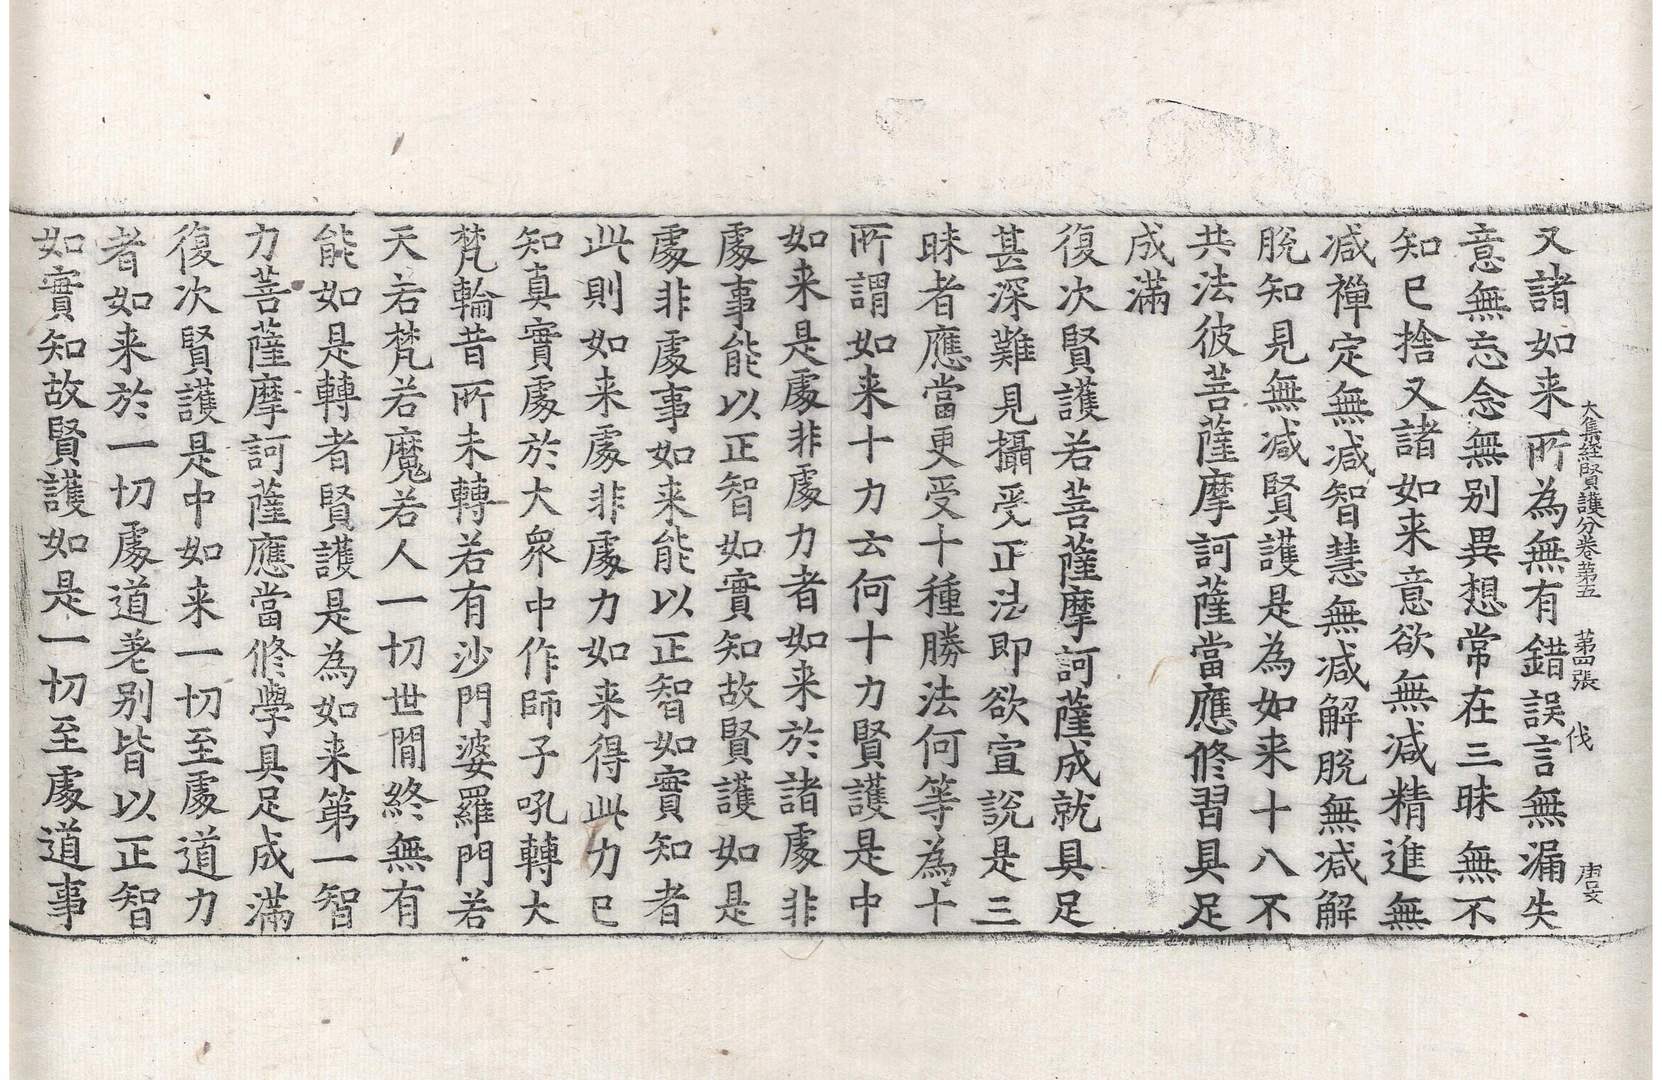 大集經賢護分卷第五 第四張 伐
又諸如来所為無有錯誤言無漏失
意無忘念無别異想常在三昧無不
知已捨又諸如来意欲無減精進無
減禪定無減智慧無減解脫無減解
脫知見無減賢護是為如来十八不
共法彼菩薩摩訶薩當應修習具足
成滿
復次賢護若菩薩摩訶薩成就具足
甚深難見攝受正法即欲宣說是三
昧者應當更受十種勝法何等為十
所謂如来十力云何十力賢護是中
如来是處非處力者如来於諸處非
處事能以正智如實知故賢護如是
處非處事如来能以正智如實知者
此則如来處非處力如来得此力已
知真實處於大衆中作師子吼轉大
梵輪昔所未轉若有沙門婆羅門若
天若梵若魔若人一切世間終無有
能如是轉者賢護是為如来第一智
力菩薩摩訶薩應當修學具足成滿
復次賢護是中如来一切至處道力
者如来於一切處道差别皆以正智
如實知故賢護如是一切至處道事